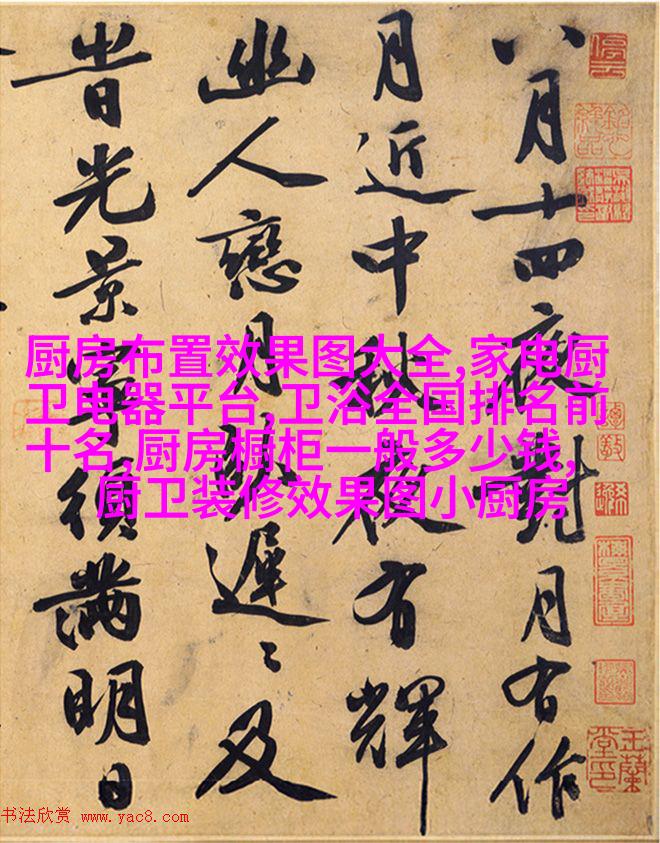 八月十四夜對月有作
月近中秋夜有輝
幽人戀月遲〻及
旹光景寧須滿明日
厨房布置效果图大全,家电厨
卫电器平台,卫浴全国排名前
十名,厨房橱柜一般多少钱,
厨卫装修效果图小厨房
停雲
玉蘭堂印
书法欣赏 www.yac8.com